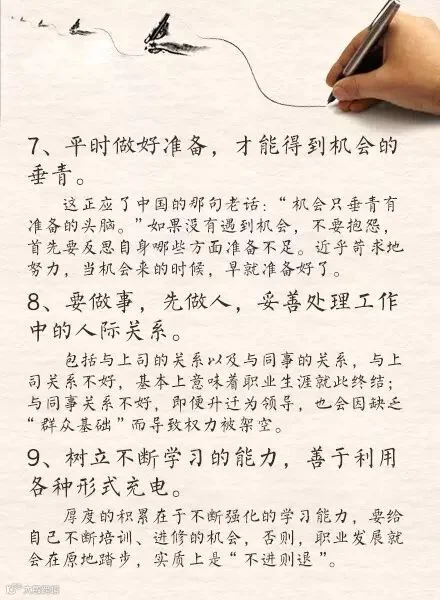 7、平时做好准备，才能得到机会的
垂青。
这正应了中国的那句老话：“机会只垂青有
准备的头脑。”如果没有遇到机会，不要抱怨，
首先要反思自身哪些方面准备不足。近乎苛求地
努力，当机会来的时候，早就准备好了。
8、要做事，先做人，妥善处理工作
中的人际关系。
包括与上司的关系以及与同事的关系，与上
司关系不好，基本上意味着职业生涯就此终结；
与同事关系不好，即便升迁为领导，也会因缺乏
“群众基础”而导致权力被架空。
9、树立不断学习的能力，善于利用
各种形式充电。
厚度的积累在于不断强化的学习能力，要给
自己不断培训、进修的机会，否则，职业发展就
会在原地踏步，实质上是“不进则退”。